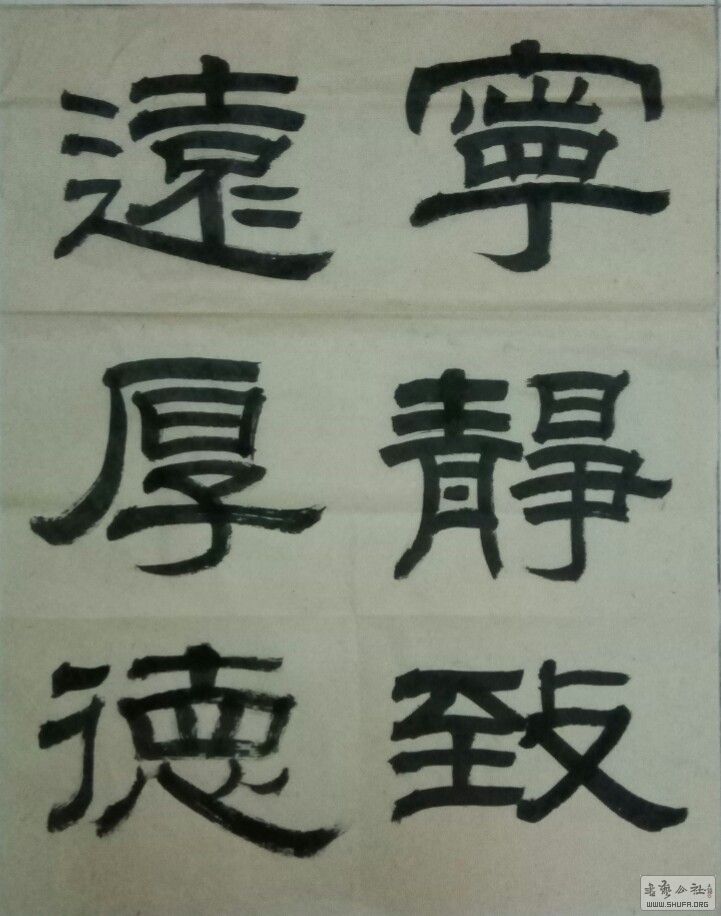 寧靜致
遠厚德
书法公社
WWW.SHUFA.ORG